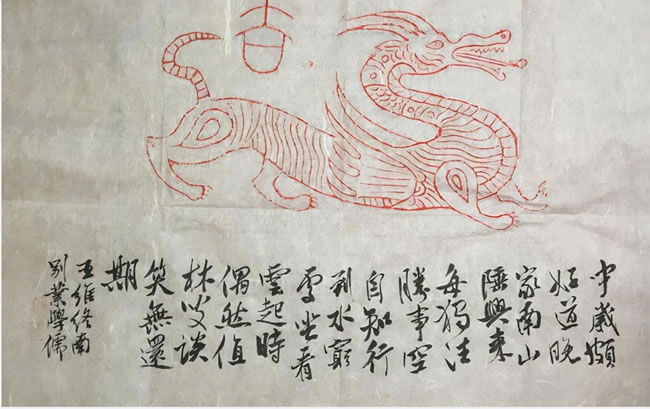 中歲頗
好道晚
家南山
陲興來
每獨往
勝事空
自知行
到水窮
處坐看
雲起時
偶然值
林叟談
笑無還
期
王維終南
別業學儒